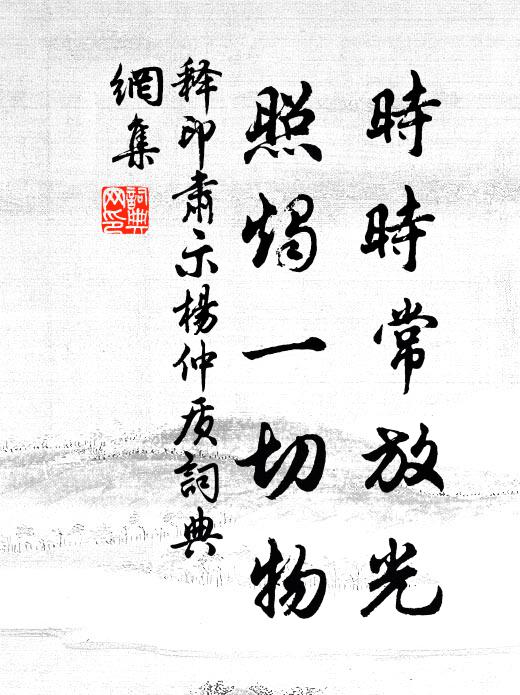 時時常放光
照燭一切物
釋印肅示楊仲质詞典
網集
詞典網印